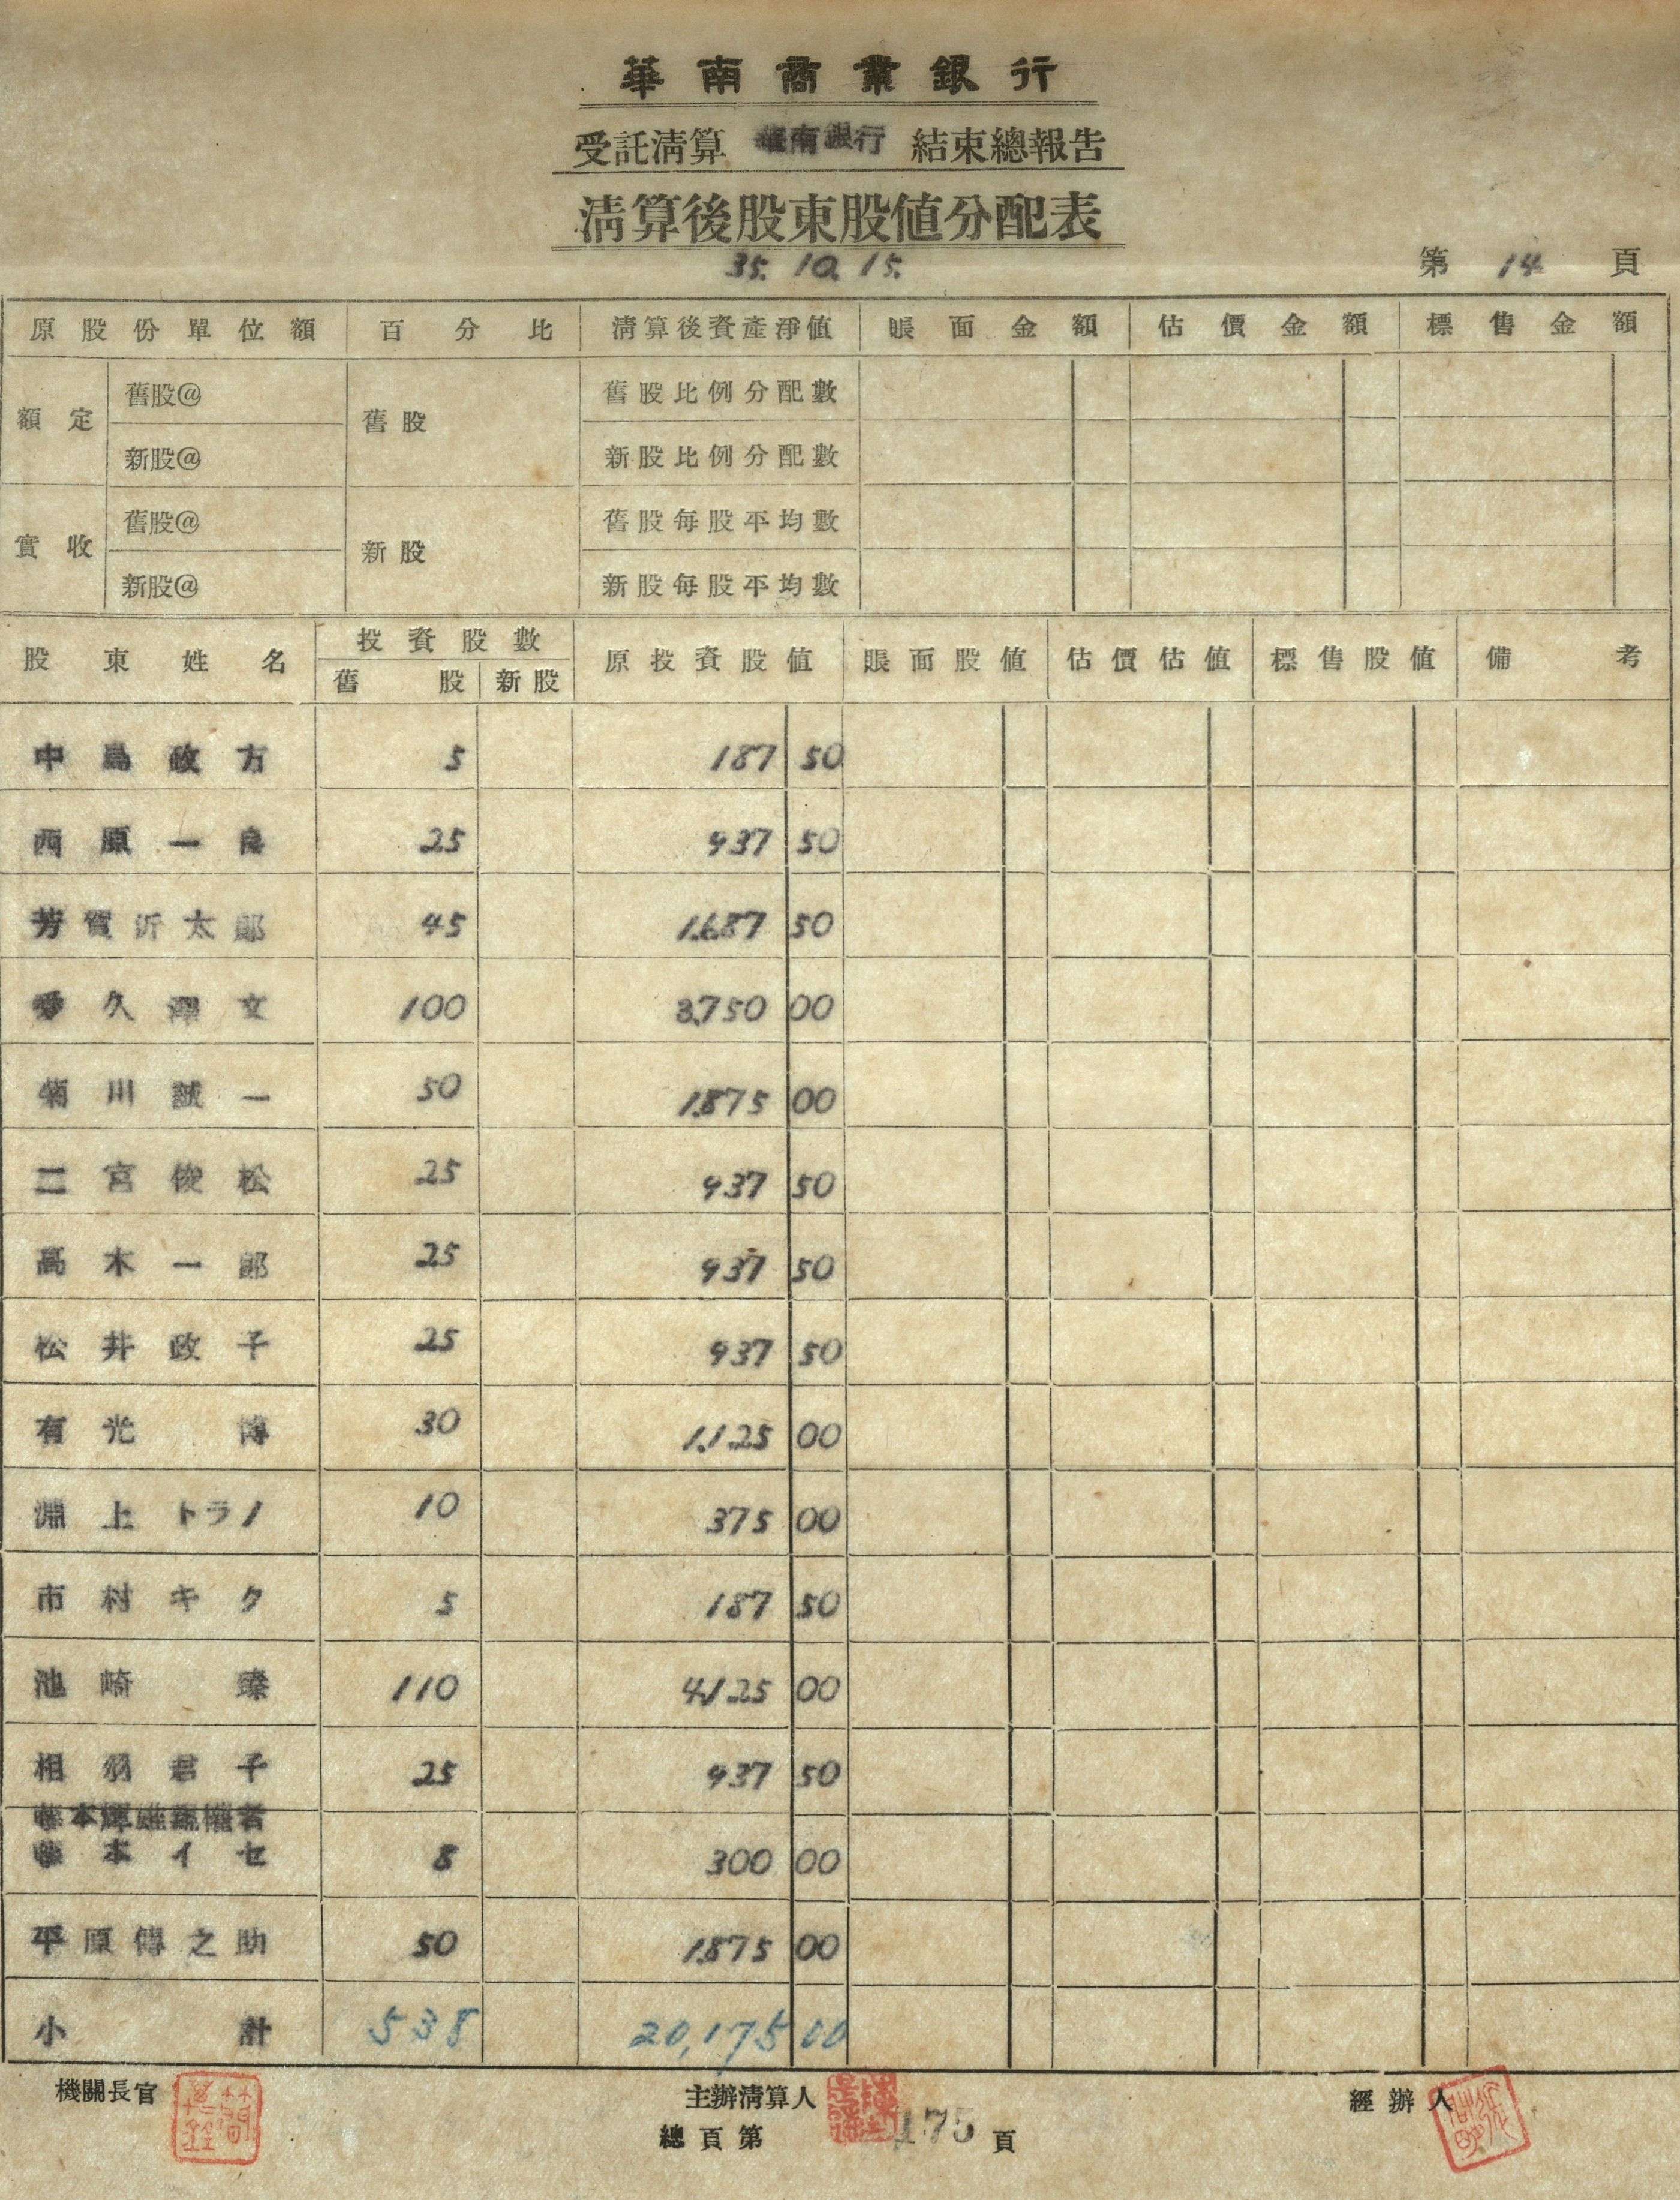 華南商業銀行
受託清算 華南銀行 結束總報告
清算後股東股値分配表
35. 10. 15.
第 14 頁
原股份單位額 百分比 清算後資產淨値 賬面金額 估價金額 標售金額
額定 舊股@ 舊股 舊股比例分配數
新股@ 新股比例分配數
實收 舊股@ 新股 舊股每股平均數
新股@ 新股每股平均數
股東姓名 投資股數 原投資股値 賬面股値 估價估値 標售股値 備考
舊股 新股
中島政方 5 187 50
西原一良 25 937 50
芳賀沂太郎 45 1,687 50
愛久澤文 100 3,750 00
菊川誠一 50 1,875 00
二宮俊松 25 937 50
高木一郎 25 937 50
松井政子 25 937 50
有光博 30 1,125 00
淵上トラノ 10 375 00
市村キク 5 187 50
池崎 110 4,125 00
相羽君子 25 937 50
本輝雄親權者
本イセ 8 300 00
平原傳之助 50 1,875 00
小計 538 20,175 00
機關長官 主辦清算人 經辦人
總頁第 175 頁